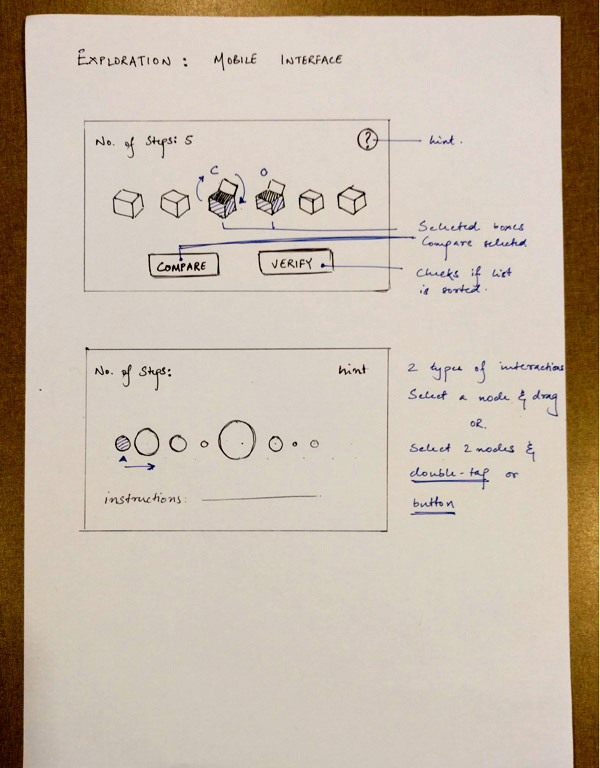 EXPLORATION: MOBILE INTERFACE
No. of Steps: 5
?
hint.
C
O
Selected boxes
Compare selected
COMPARE
VERIFY
Checks if list
is sorted.
No. of Steps:
hint
2 types of interactions
Select a node & drag
OR.
Select 2 nodes &
double-tag or
button
A
instructions: